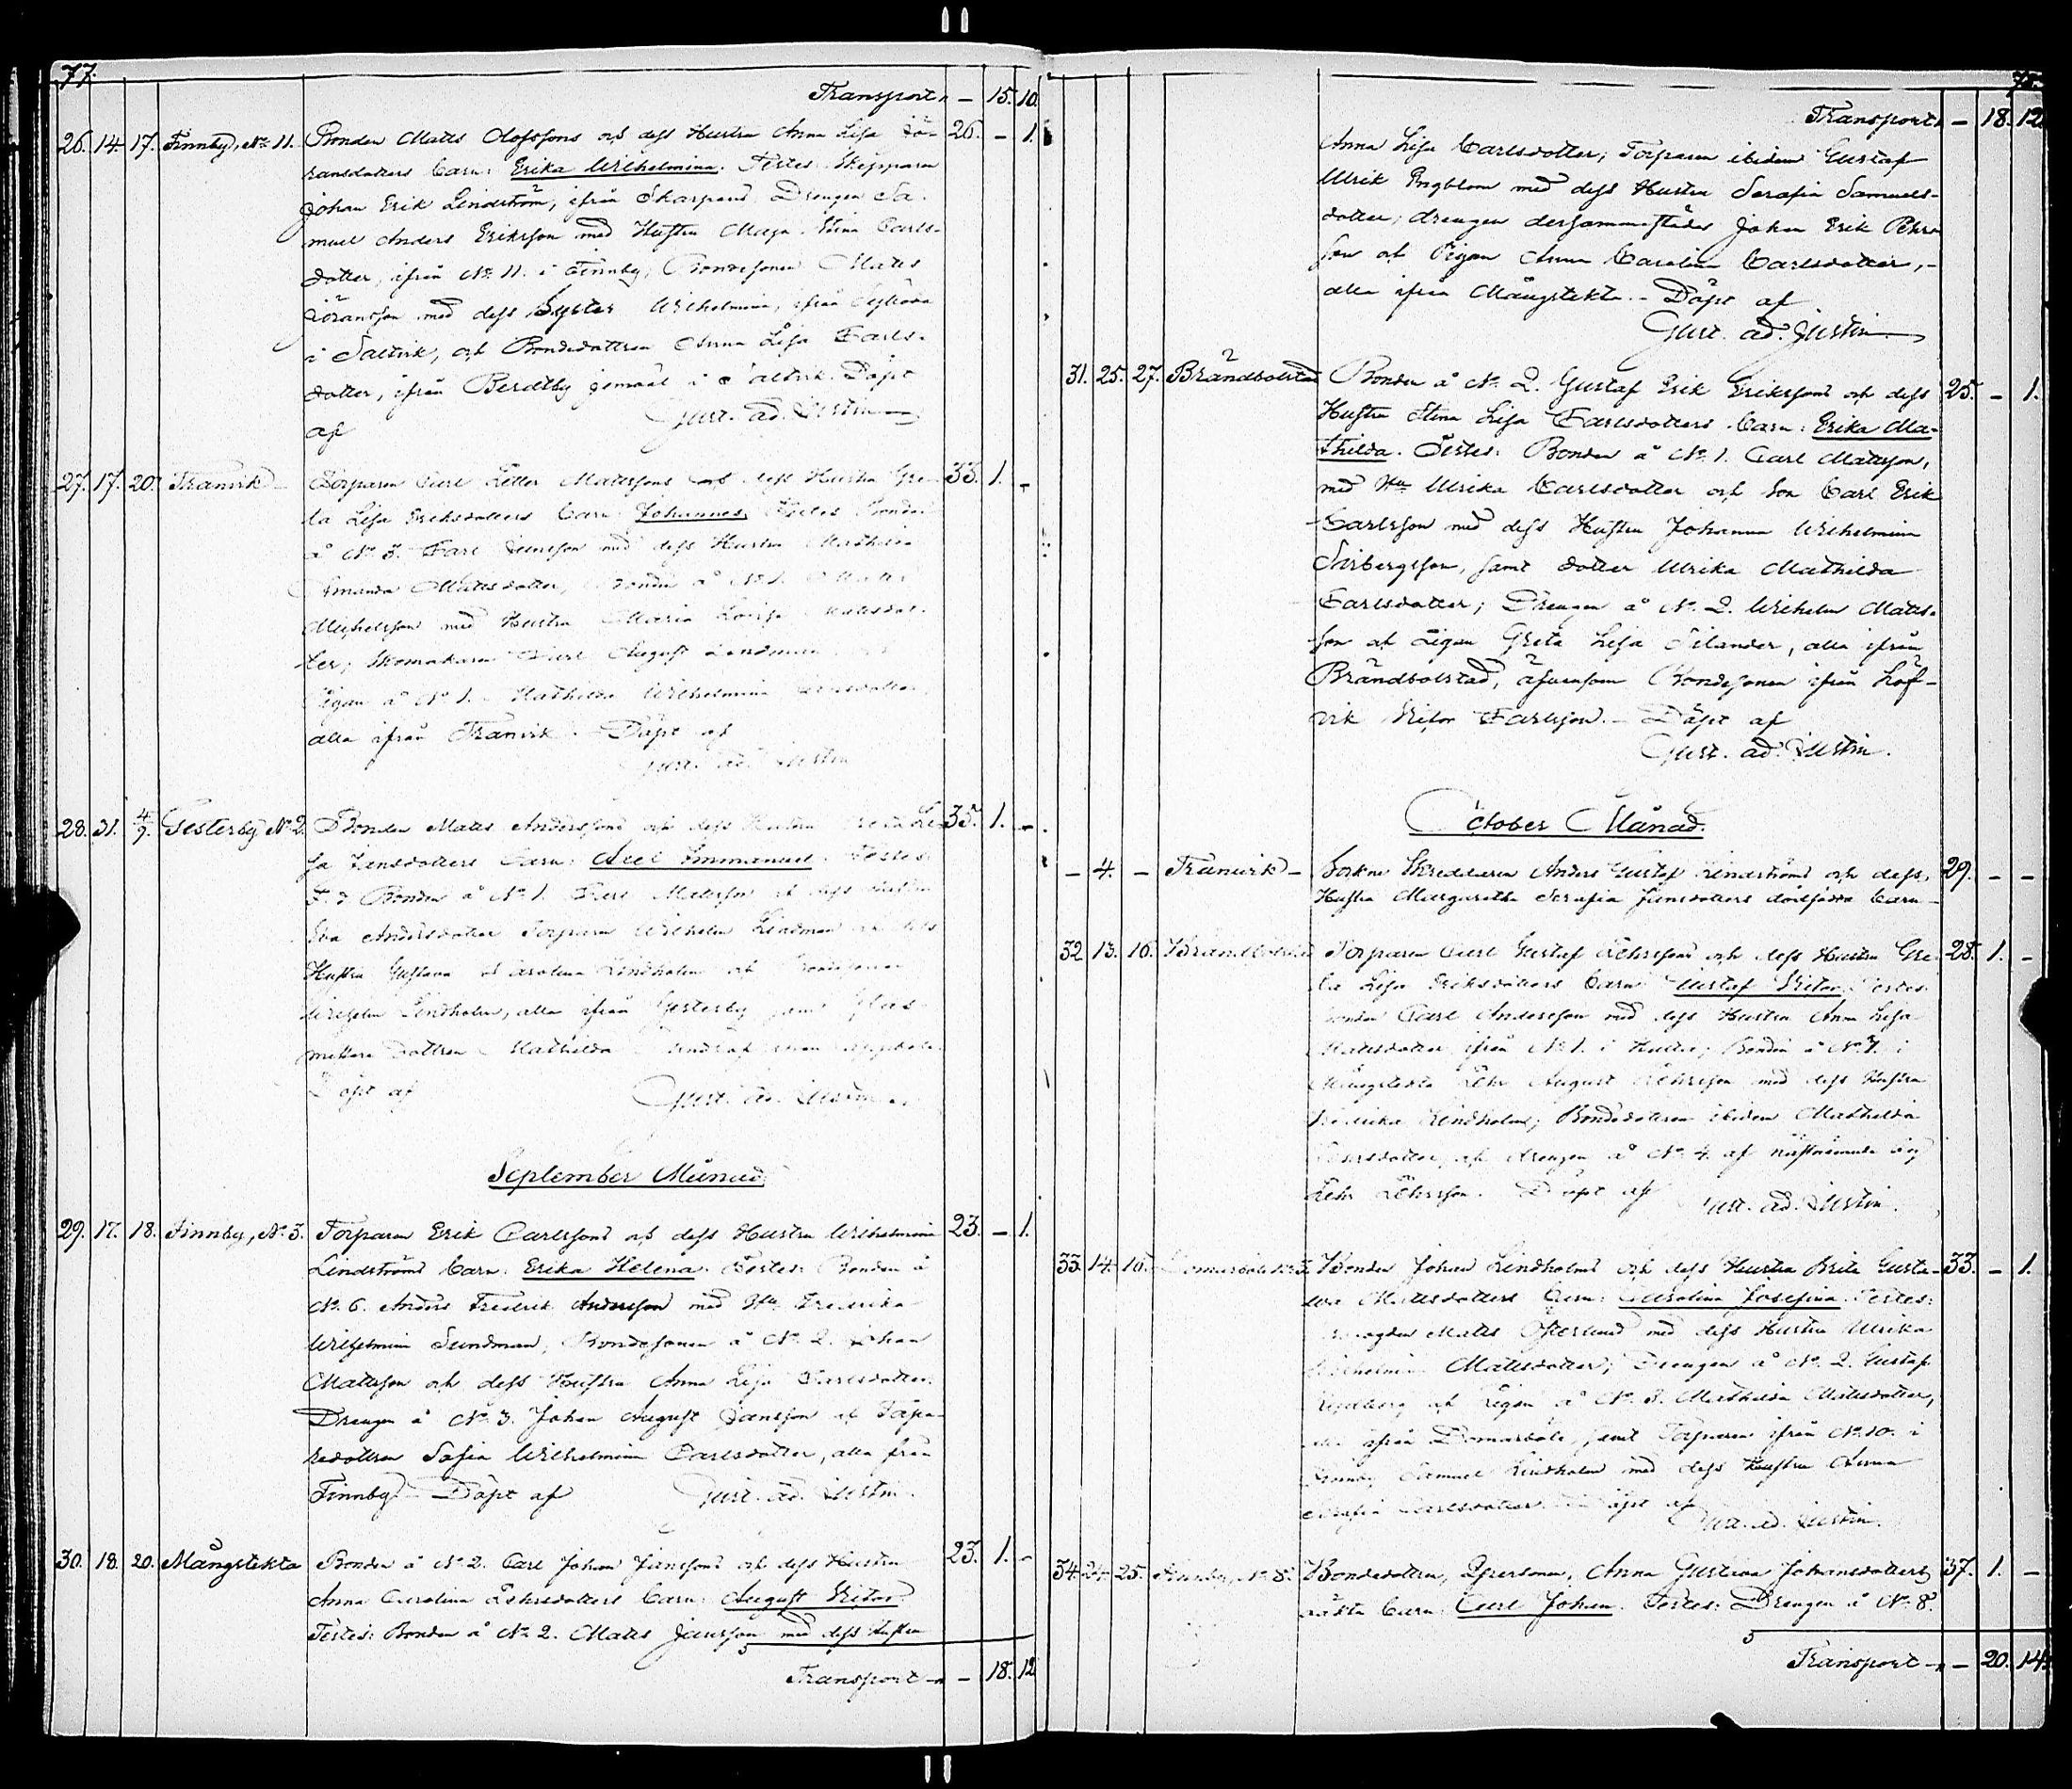 77.
Transport, — 15. 10.
26. 14. 17. Finnby, No 11. Bonden Matts Olofssons och dess Hustru Anna Lisa Jö- 26. — 1.
ransdotters barn: Erika Wilhelmina. Testes: Skepparen
Johan Erik Lindström, ifrån Skarpans, Drengen Sa-
muel Anders Eriksson med Hustru Maja Stina Carls-
dotter, ifrån No 11. i Finnby, Bondesonen Matts
Jöransson med dess Syster Wilhelmina, ifrån
i Saltvik, och Bondedottren Anna Lisa Carls-
dotter, ifrån Bertby jemväl i Saltvik. Döpt
af Gust. ad. Justin
27. 17. 20. Tranvik — Torparen Carl Petter Mattssons och dess Hustru Gre- 33. 1. —
ta Lisa Eriksdotters barn Johannes. Testes Bonden
å No 3. Carl Jansson med dess Hustru Mathilda
Amanda Mattsdotter, Bonden å No 1. Matts
Michelsson med Hustru Maria Lovisa Mattsdot-
ter; Skomakaren Carl August Lindman och
Pigan å No 1. Mathilda Wilhelmina
alla ifrån Tranvik. Döpt af
Gust. ad. Justin
28. 31. 4/9. Gesterby No 2. Bonden Matts Anderssons och dess Hustru Greta Li- 35. 1. —
sa Jansdotters barn: Axel Emmanuel. Testes:
F. d. Bonden å No 1. Carl Mattsson och dess Hustru
Eva Andersdotter Torparen Wilhelm Lindman och dess
Hustru Gustava Carolina Lindholm och Bondesonen
Wilhelm Lindholm, alla ifrån Gesterby, samt
dottren Mathilda
Döpt af Gust. ad. Justin
September Månad.
29. 17. 18. Finnby, No 3. Torparen Erik Carlssons och dess Hustru Wilhelmina 23. — 1.
Lindströms barn: Erika Helena. Testes: Bonden å
No 6. Anders Fredrik Andersson med Hu Fredrika
Wilhelmina Sundman, Bondesonen å No 2. Johan
Mattsson och dess Hustru Anna Lisa Carlsdotter.
Drengen å No 3. Johan August Jansson och Torpa-
redottren Sofia Wilhelmina Carlsdotter, alla från
Finnby. Döpt af Gust. ad. Justin.
30. 18. 20. Mångstekta Bonden å No 2. Carl Johan Janssons och dess Hustru 23. 1. —
Anna Carolina Pehrsdotters barn: August Victor.
Testes: Bonden å No 2. Matts Jansson med dess Hustru
5
Transport — — 18. 12
75.
Transport, — 18. 12
Anna Lisa Carlsdotter; Torparen ibidem Gustaf
Ulrik Engblom med dess Hustru Serafia Samuels-
dotter; drengen dersammastädes Johan Erik Pehrs
son och Pigan Anna Carolina Carlsdotter, —
alla ifrån Mångstekta. — Döpt af
Gust. ad. Justin
31. 25. 27. Brändbolstad Bonden å No 2. Gustaf Erik Erikssons och dess 25. — 1.
Hustru Stina Lisa Carlsdotters barn: Erika Ma-
thilda. Testes: Bonden å No 1. Carl Mattsson,
med Hu Ulrika Carlsdotter och Son Carl Erik
Carlsson med dess Hustru Johanna Wilhelmina
samt dotter Ulrika Mathilda
Carlsdotter; Drengen å No 2. Wilhelm Matts-
son och Pigan Greta Lisa Silander, alla ifrån
Brändbolstad, äfvensom Bondesonen ifrån Löf-
vik Victor Carlsson. — Döpt af
Gust. ad. Justin.
October Månad.
— 4. — Tranvik — Sockne Skreddaren Anders Gustaf Lindströms och dess 29. — —
Hustru Margaretha Serafia Jansdotters dödfödda barn —
32 13. 16. Brändbolstad Torparen Carl Gustaf Pehrssons och dess Hustru Gre- 28. 1. —
ta Lisa Eriksdotters barn Gustaf Victor. Testes:
Bonden Carl Andersson med dess Hustru Anna Lisa
Mattsdotter ifrån No 1. i Hulta; Bonden å No 4. i
Mångstekta Pehr August Pehrsson med dess Hustru
Fredrika Lindholm; Bondedottren ibidem Mathilda
Pehrsdotter, och drengen å No 4. af nästnämnde by
Pehr Pehrsson. Döpt af Gust. ad. Justin.
33. 14. 16. Domarböle No 3. Bonden Johan Lindholms och dess Hustru Brita Gusta- 33. — 1.
va Mattsdotters barn: Carolina Josefina. Testes:
Matts Österlund med dess Hustru Ulrika
Wilhelmina Mattsdotter; Drengen å No 2. Gustaf
och Pigan å No 3. Mathilda Mattsdotter,
alla ifrån Domarböle, samt Torparen ifrån No 10. i
Finnby Samuel Lindholm med dess Hustru Anna
Serafia Carlsdotter. Döpt af Gust. ad. Justin.
34. 24. 25. Finnby, No 8. Bondedottren, Qpersonen, Anna Gustava Johansdotters 37. 1. —
oäkta barn: Carl Johan. Testes: Drengen å No 8.
5
Transport — — 20. 14.